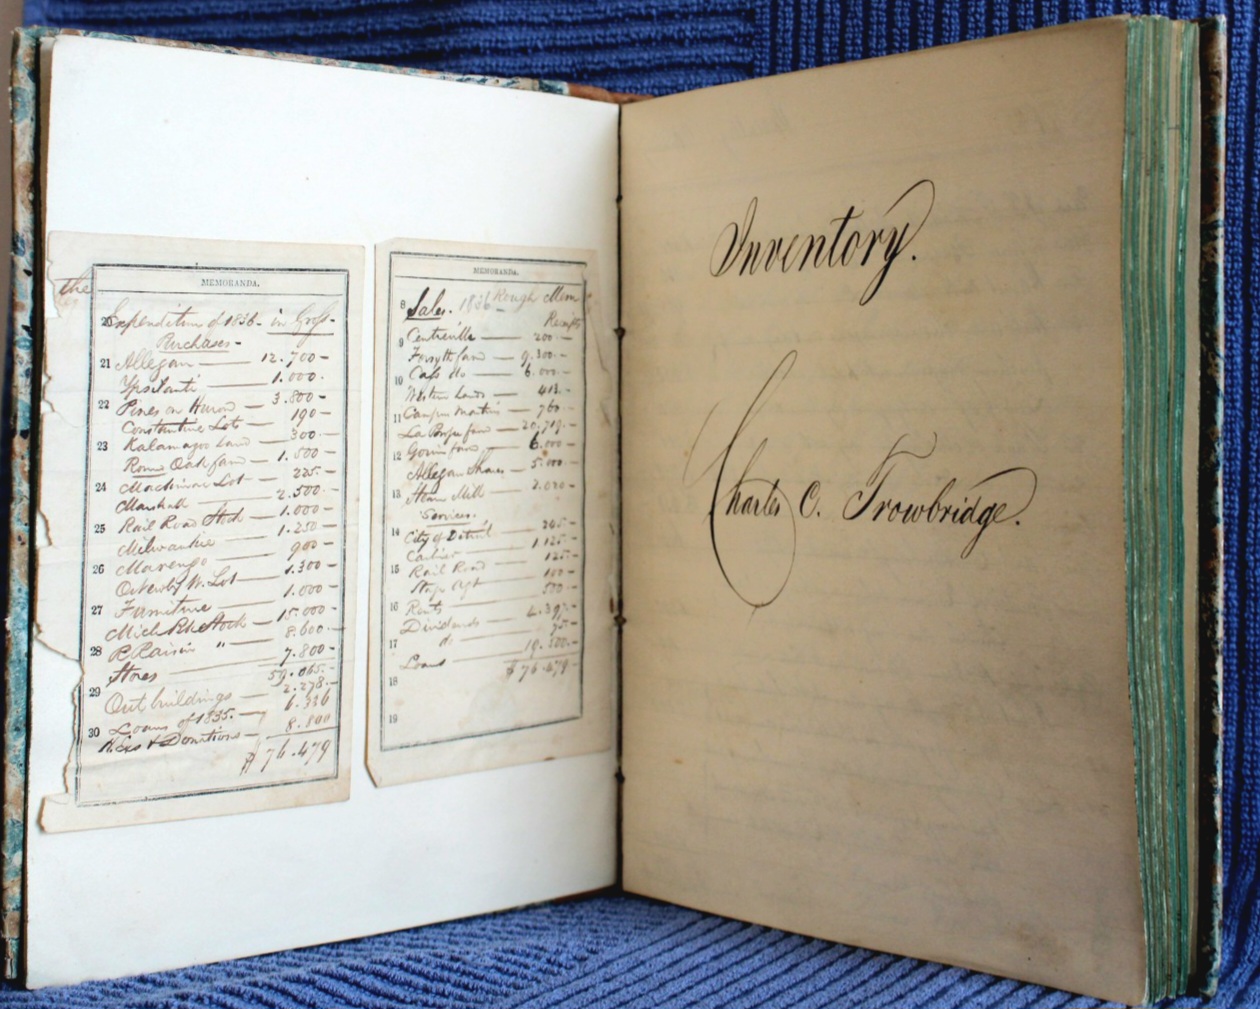 the
MEMORANDA.
20 Expenditures of 1836 - in Gross.
Purchases -
21 Allegan — 12.700 -
Ypsilanti — 1.000.
22 Pines on Huron — 3.800 -
Constantine Lots — 190 -
23 Kalamazoo Land — 300 -
Round Oak farm — 1.500 -
24 Mackinac Lot — 225. -
Marshall — 2.500. -
25 Rail Road Stock — 1.000 -
Milwaukie — 1.250 -
26 Marengo — 900 -
Newby W. Lot — 1.300 -
27 Furniture — 1.000 -
Mich Bk Stock — 15.000 -
28 R Raisin " — 8.600 -
Stores — 7.800 -
59.065. -
29 Out buildings — 2.278. -
30 Loans of 1835. — 6.336
& Donations — 8.800
$ 76.479
MEMORANDA.
8 Sales. 1836 - Rough Mem
Receipts
9 Centreville — 200 -
Forsyth farm — 9.300 -
10 Cass do — 6.000 -
Western Lands — 413. -
11 Campus Martius — 760 -
La Borge farm — 20.719. -
12 Gouin farm — 6.000 -
Allegan Shares — 5.000 -
13 Steam Mill — 2.000 -
Services.
14 City of Detroit —
— 1.125. -
15 Rail Road — 125. -
— 100 -
16 Rents — 500 -
Dividends —
17 do — 75. -
Loans — 19.500. -
18 $ 76.479 -
19
Inventory.
Charles C. Trowbridge.